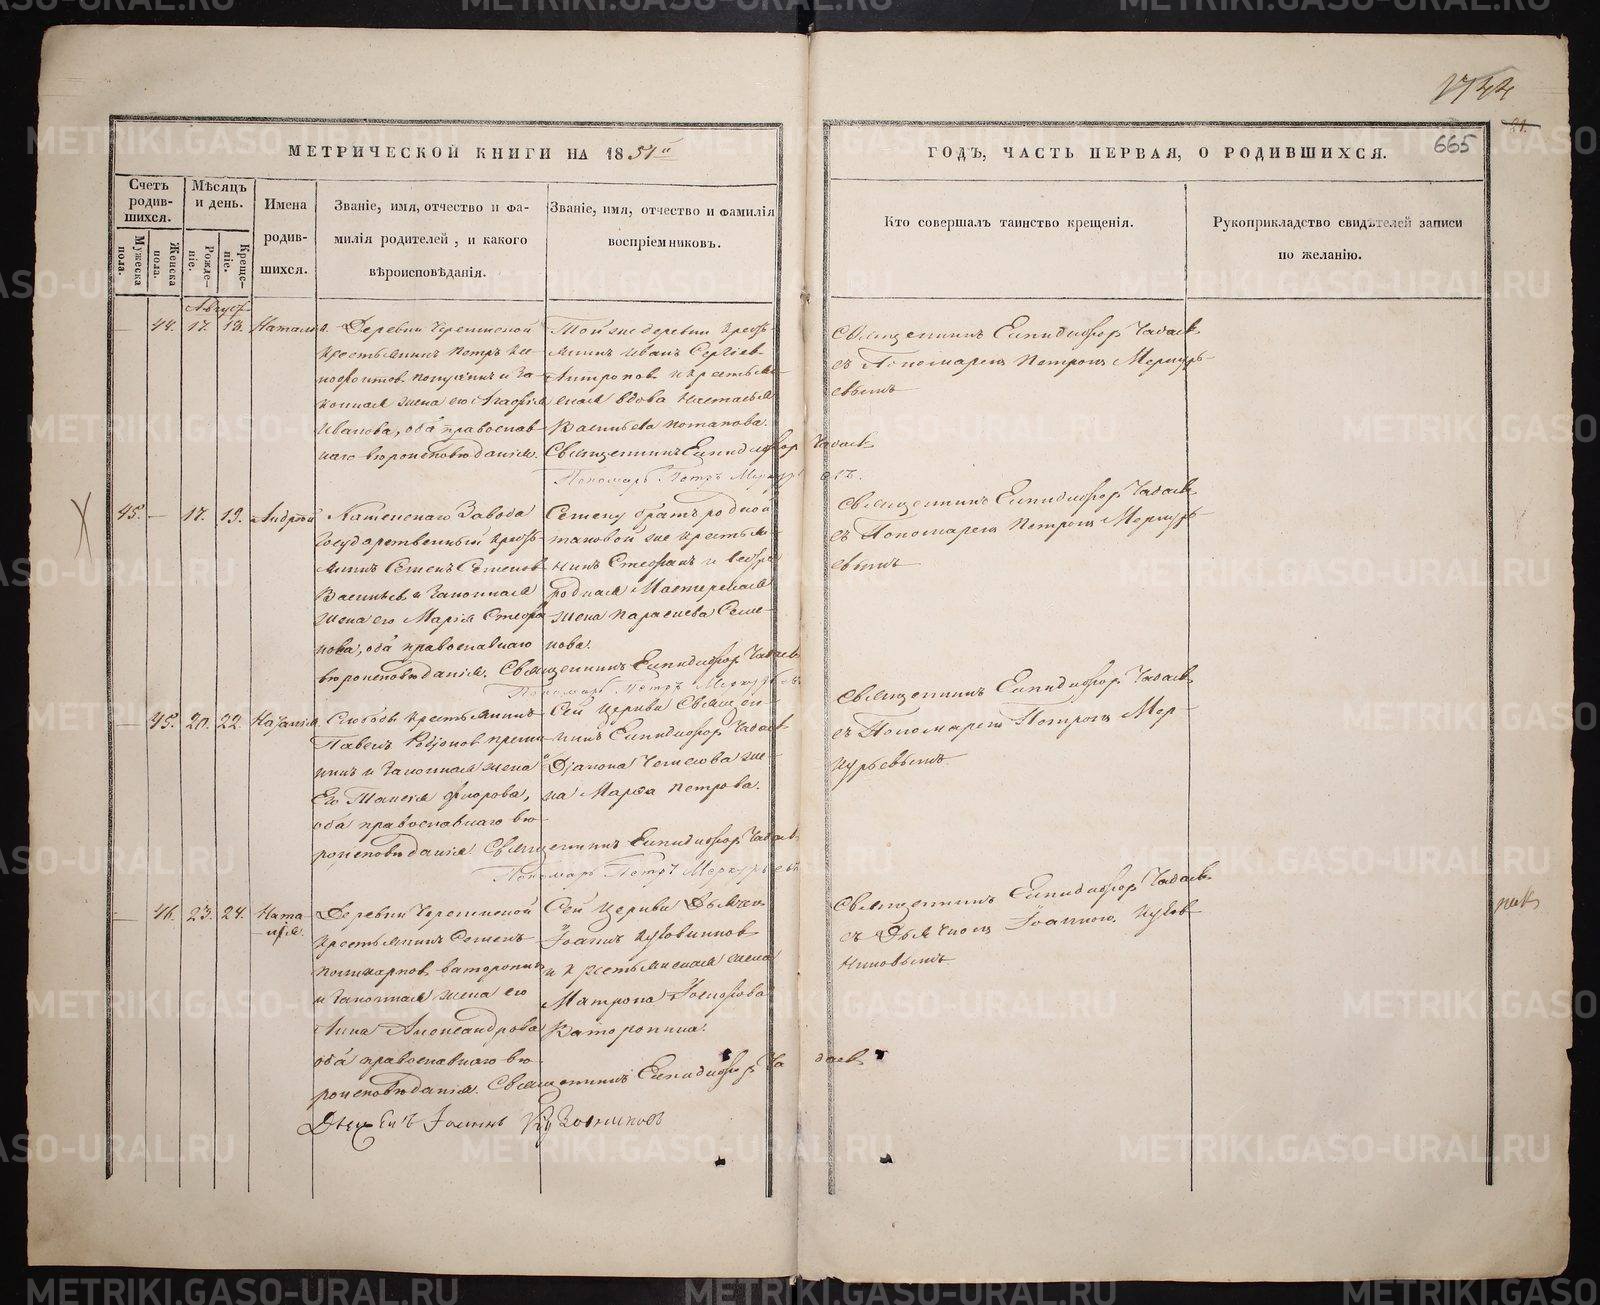 1744
81.
665
МЕТРИЧЕСКОЙ КНИГИ НА 1851й
ГОДЪ, ЧАСТЬ ПЕРВАЯ, О РОДИВШИХСЯ.
Счетъ родив- шихся.
Мужеска пола.
Женска пола.
Мѣсяцъ и день.
Рожде- ніе.
Креще- ніе.
Имена
родив-
шихся.
Званіе, имя, отчество и фа-
милія родителей, и какого
вѣроисповѣданія.
Званіе, имя, отчество и фамилія
воспріемниковъ.
Кто совершалъ таинство крещенія.
Рукоприкладство свидѣтелей записи
по желанію.
Августъ
44. 17. 19. Наталія.
Деревни Черемисской
крестьянинъ Петръ
и за-
конная жена его Агафія
Иванова, оба православ-
наго вѣроисповѣданія.
Той же деревни кресть-
янинъ Иванъ Сергіевъ
Антроповъ и крестьян-
ская вдова Настасья
Васильева Потапова.
Священникъ Елпидифор Чадаевъ
Пономарь Петръ Меркурьевъ.
Священникъ Елпидифор Чадаевъ
съ Пономаремъ Петромъ Меркурь-
евымъ
45. — 17. 19. Андрей
Каменскаго Завода
Государственный кресть-
янинъ Семенъ Семеновъ
Васильевъ и законная
жена его Марія Стефа-
нова, оба православнаго
вѣроисповѣданія.
Семену братъ родной
таковой же крестья-
нинъ Стефанъ и сестра
родная Мастерская
жена Параскева Семе-
нова.
Священникъ Елпидифор Чадаевъ
Пономарь Петръ Меркурьевъ
Священникъ Елпидифор Чадаевъ
съ Пономаремъ Петромъ Меркурь-
евымъ
— 45. 20. 22. Наталія.
Слободы крестьянинъ
Павелъ
и законная жена
Его Таисія Флорова,
оба православнаго вѣ-
роисповѣданія.
Сей церкви Священ-
никъ Елпидифор Чадаевъ
Діакона жена
Марѳа Петрова.
Священникъ Елпидифор Чадаевъ
Пономарь Петръ Меркурьевъ
Священникъ Елпидифор Чадаевъ
съ Пономаремъ Петромъ Мер-
курьевымъ
— 46. 23. 24. Ната-
лія.
Деревни Черемисской
крестьянинъ Семенъ
Поликарповъ Ваторопинъ
и законная жена его
Анна Александрова
оба православнаго вѣ-
роисповѣданія.
Сей церкви Дьячекъ
Іоаннъ Кузовниковъ
и крестьянская жена
Матрона
Ваторопина.
Священникъ Елпидифор Чадаевъ
Дьячекъ Іоаннъ Кузовниковъ
Священникъ Елпидифор Чадаевъ
съ Дьячкомъ Іоанномъ Кузов-
никовымъ
METRIKI.GASO-URAL.RU